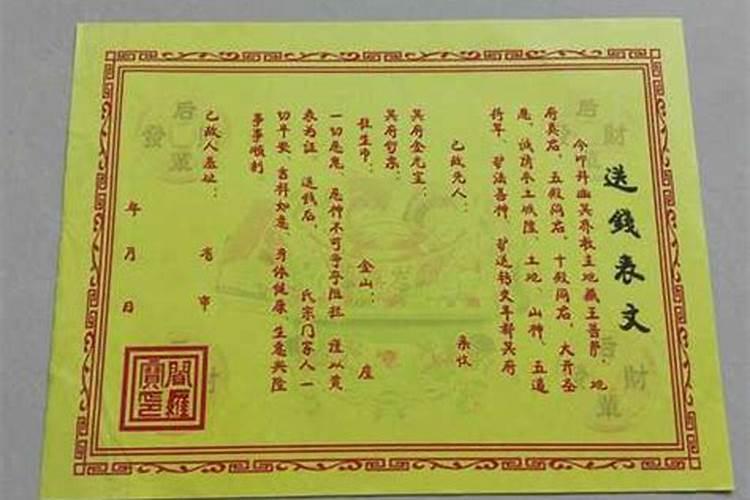 送錢表文
今叩拜幽冥界教主地藏王菩萨、地
府真君、五殿阎君、十殿阎君、大齐圣
恩、诚请本土城隍、土地、山神、五道
将军、护法善神、护送钱文年都冥府
已故先人：亲收
冥府金元宝：
冥府哲票：金山：座
往生币：
一切恶鬼、恶神不可争夺阻拦、谨以黄
表为证、送钱后、氏宗门家人一
切平安、吉祥如意、身体健康、生意兴隆
事事顺利
已故人墓地：省市
年月日
閻羅寶印
后財發單